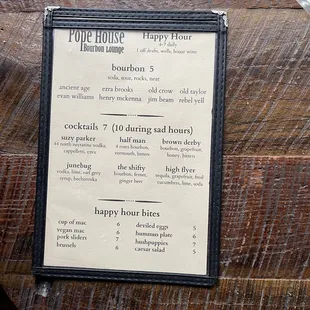 Pope House
Bourbon Lounge
Happy Hour
4-7 daily
1 off drafts, wells, house wine
bourbon 5
soda, sour, rocks, neat
ancient age ezra brooks old crow old taylor
evan williams henry mckenna jim beam rebel yell
cocktails 7 (10 during sad hours)
suzy parker half man brown derby
44 north nectarine vodka, 4 roses bourbon, bourbon, grapefruit,
cappelletti, cava vermouth, bitters honey, bitters
junebug the shifty high flyer
vodka, lime, earl grey bourbon, fernet, tequila, grapefruit, fried
syrup, ginger beer cucumbers, lime, soda
happy hour bites
cup of mac 6 deviled eggs 5
vegan mac 6 hummus plate 6
pork sliders 7 hushpuppies 7
brussels 6 caesar salad 5